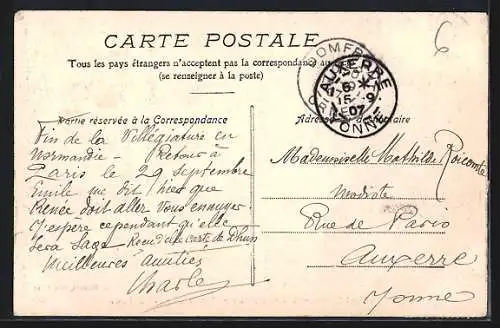 6
CARTE POSTALE
Tous les pays étrangers n'acceptent pas la correspondance au
(se renseigner à la poste)
DOMFR
AUXERRE
6 *
15 9
07
YONNE
Partie réservée à la Correspondance
Adresse du destinataire
Fin de la Villégiature en
Normandie - Retour à
Paris le 29 septembre
Emile me dit hier que
Renée doit aller vous ennuyer
J'espère cependant qu'elle
sera sage Reçu d'elle carte de Dhuis
Meilleures amitiés
Charle
Mademoiselle Mathilde
Modiste
Rue de Paris
Auxerre
Yonne